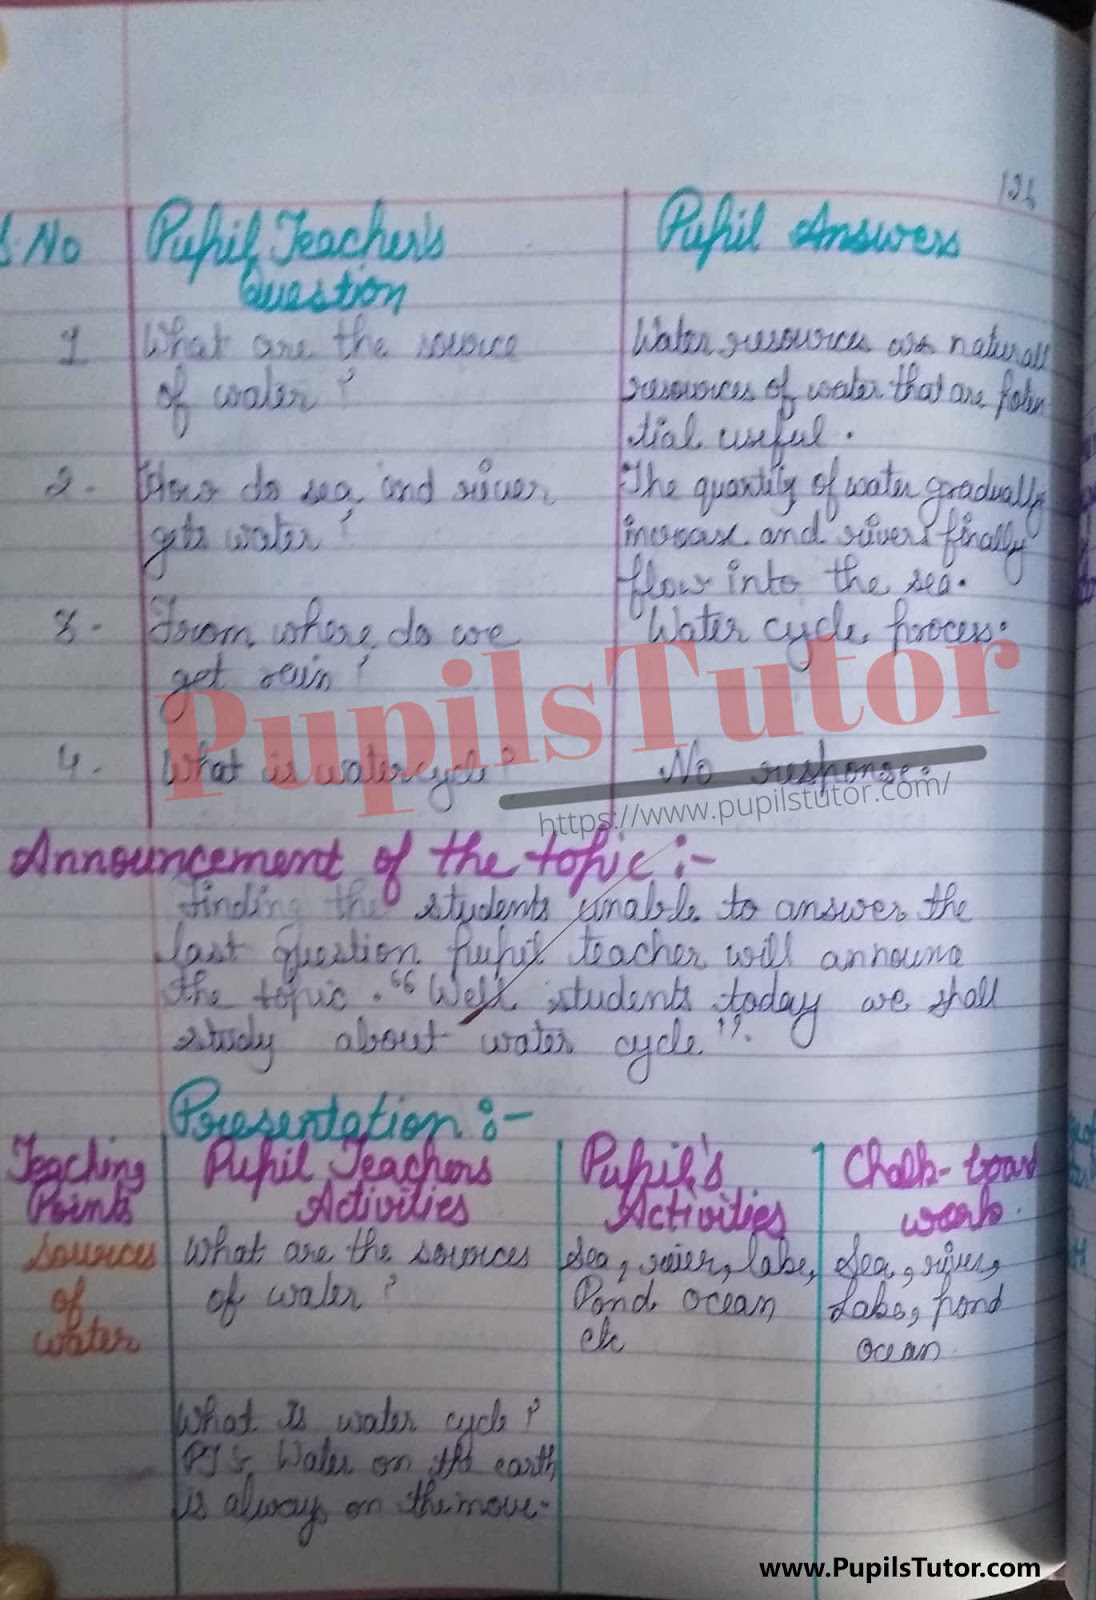 S.No Pupil Teacher's Pupil Answers
Question
1 What are the source Water resources are naturall
of water? resources of water that are poten
tial useful.
2. How do sea and river The quantity of water gradually
gets water? increase and rivers finally
flow into the sea.
3. From where do we Water cycle process.
get rain?
4. What is watercycle? No response.
PupilsTutor
https://www.pupilstutor.com/
Announcement of the topic :-
Finding the students unable to answer the
last question pupil teacher will announce
the topic. "Well students today we shall
study about water cycle".
Presentation :-
Teaching Pupil Teachers Pupil's Chalk-board
Points Activities Activities work.
Sources What are the sources Sea, river, lake, Sea, river,
of of water? Pond ocean Lake, pond
water etc ocean.
What is water cycle?
Water on the earth
is always on the move.
www.PupilsTutor.com